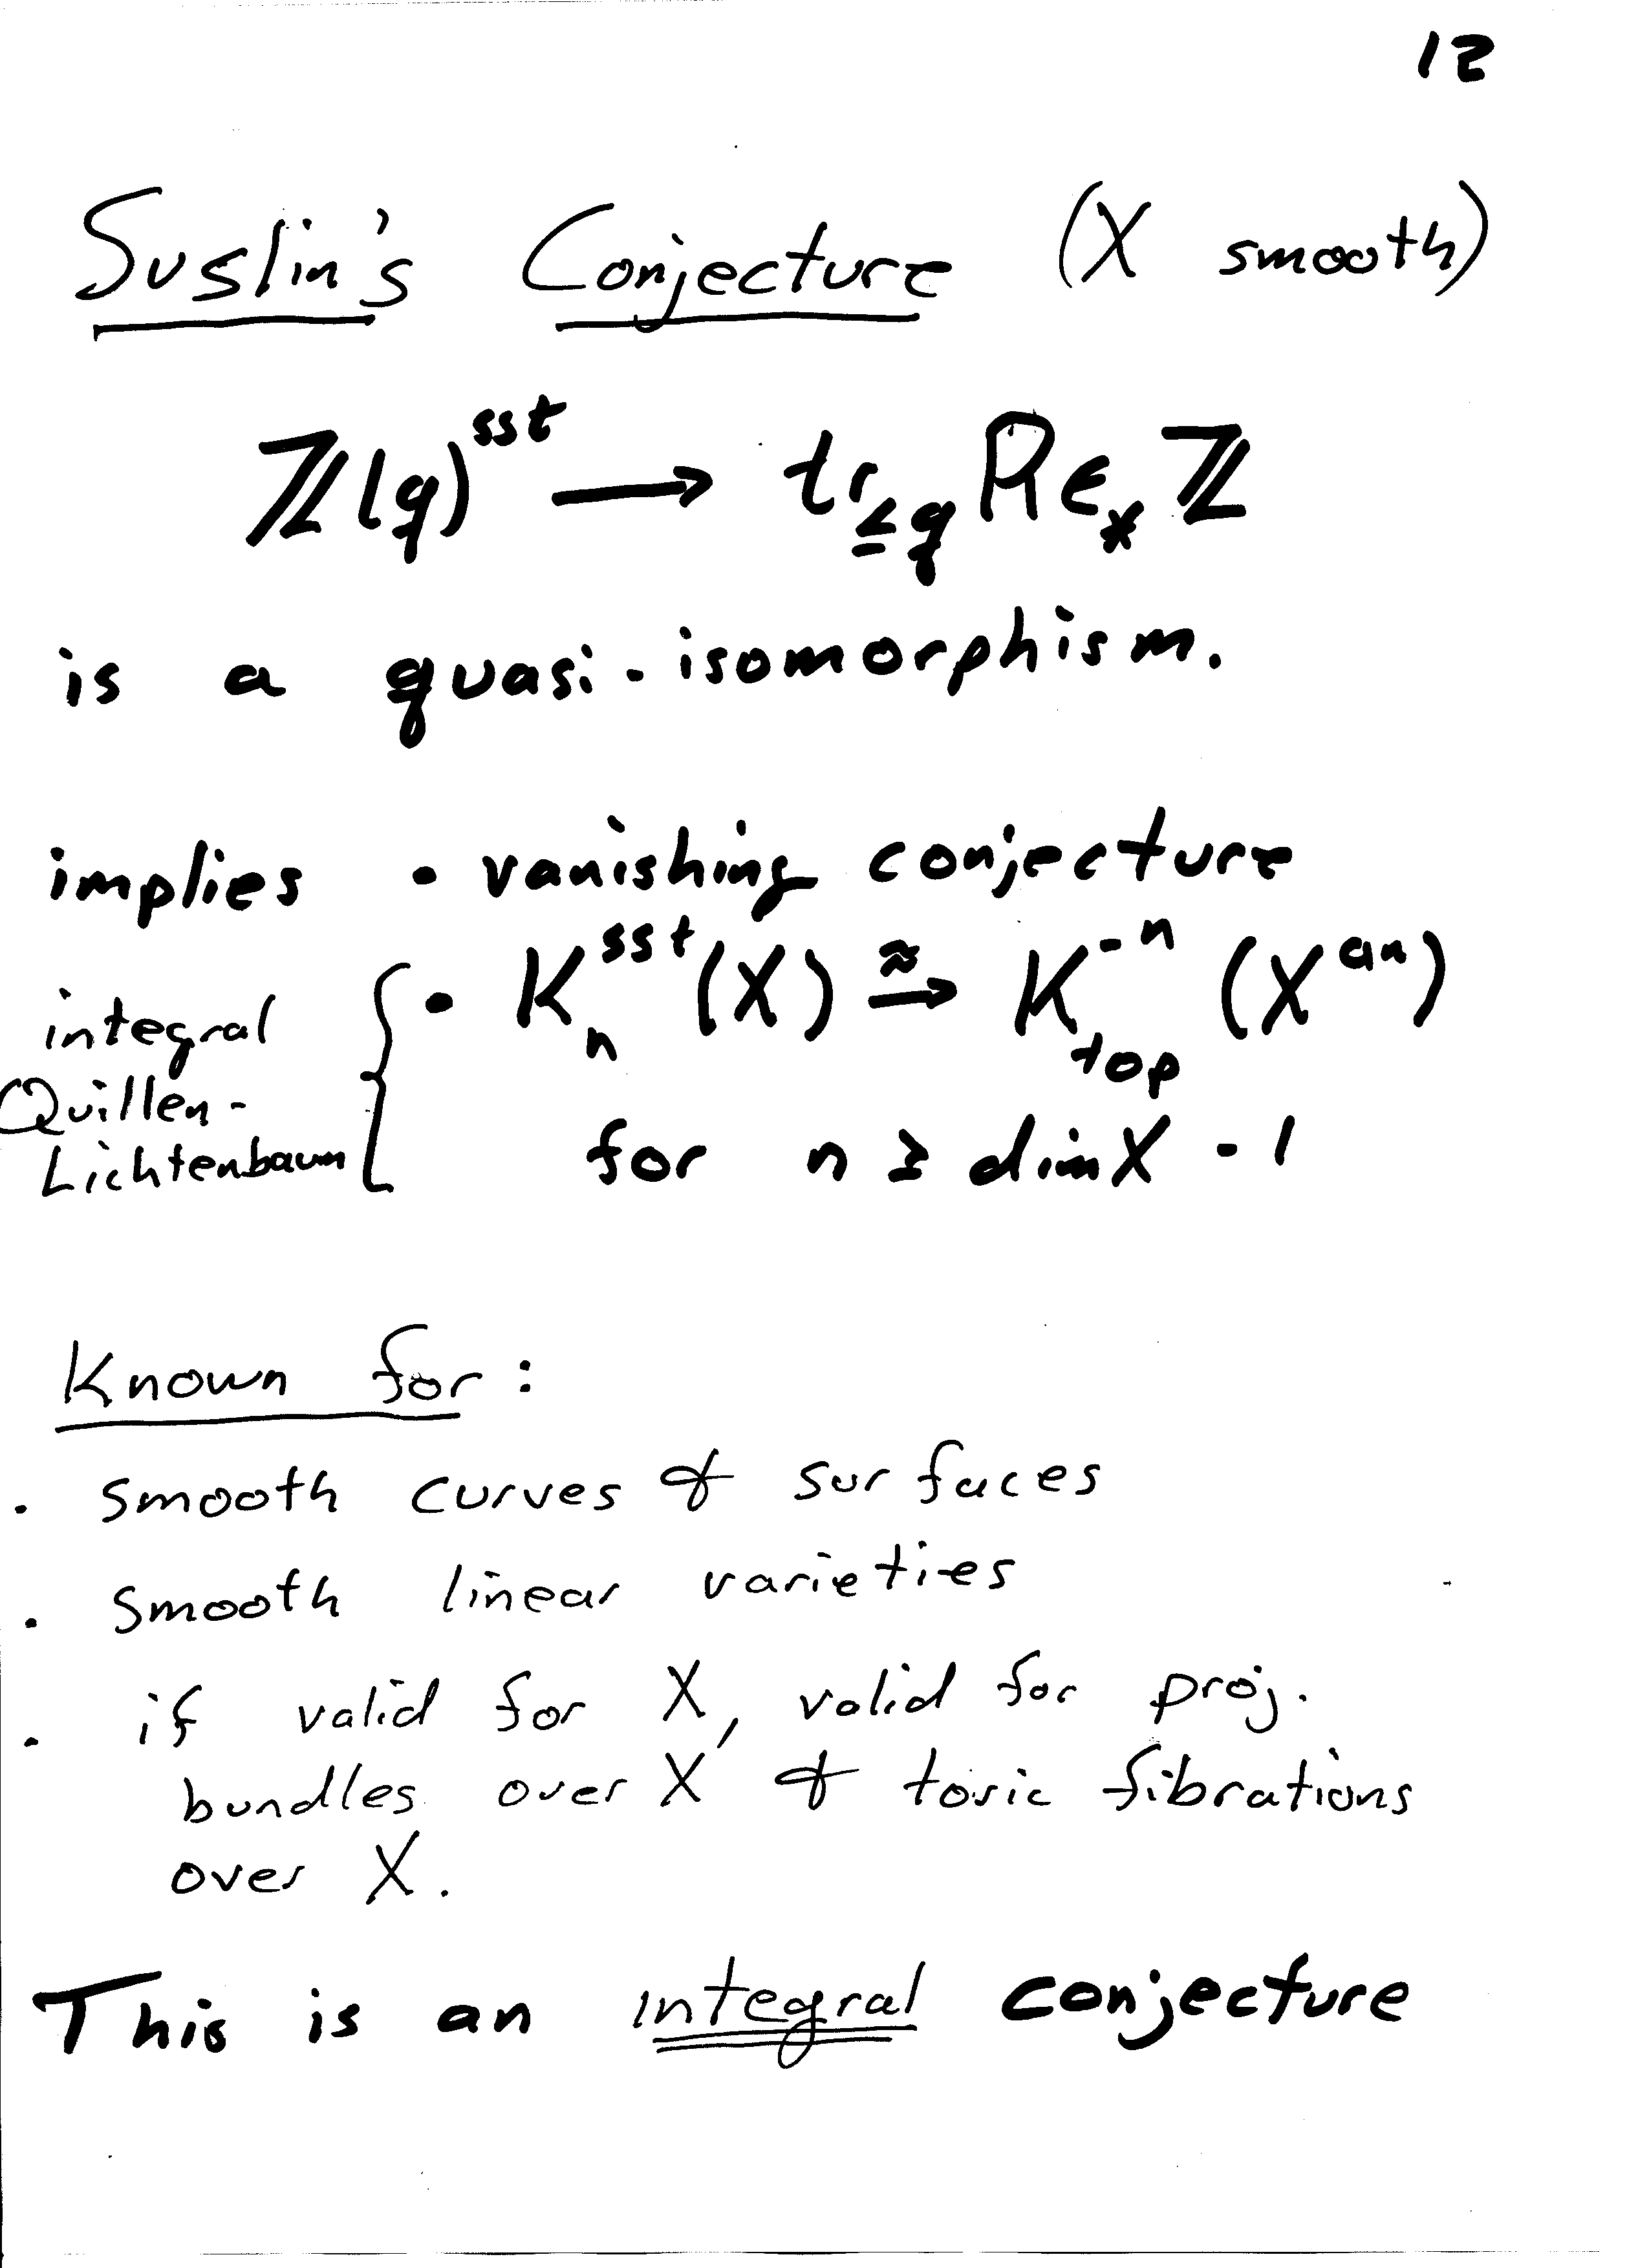 12
Suslin's Conjecture (X smooth)
ℤ(q)^{sst} ⟶ tr_{≤q} ℝε_* ℤ
is a quasi-isomorphism.
implies • vanishing conjecture
integral Quillen-Lichtenbaum { • K_n^{sst}(X) ≅→ K_{top}^{-n}(X^{an})
for n ≥ dim X - 1
Known for:
• smooth curves & surfaces
• smooth linear varieties
• if valid for X, valid for proj.
bundles over X & toric fibrations
over X.
This is an integral conjecture